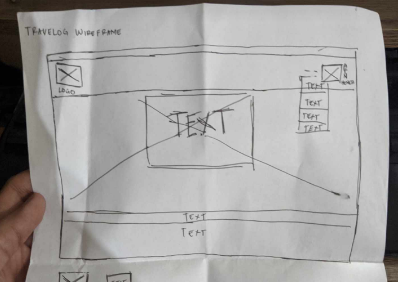 TRAVELOG WIREFRAME
LOGO
TEXT
TEXT
TEXT
TEXT
TEXT
TEXT
TEXT